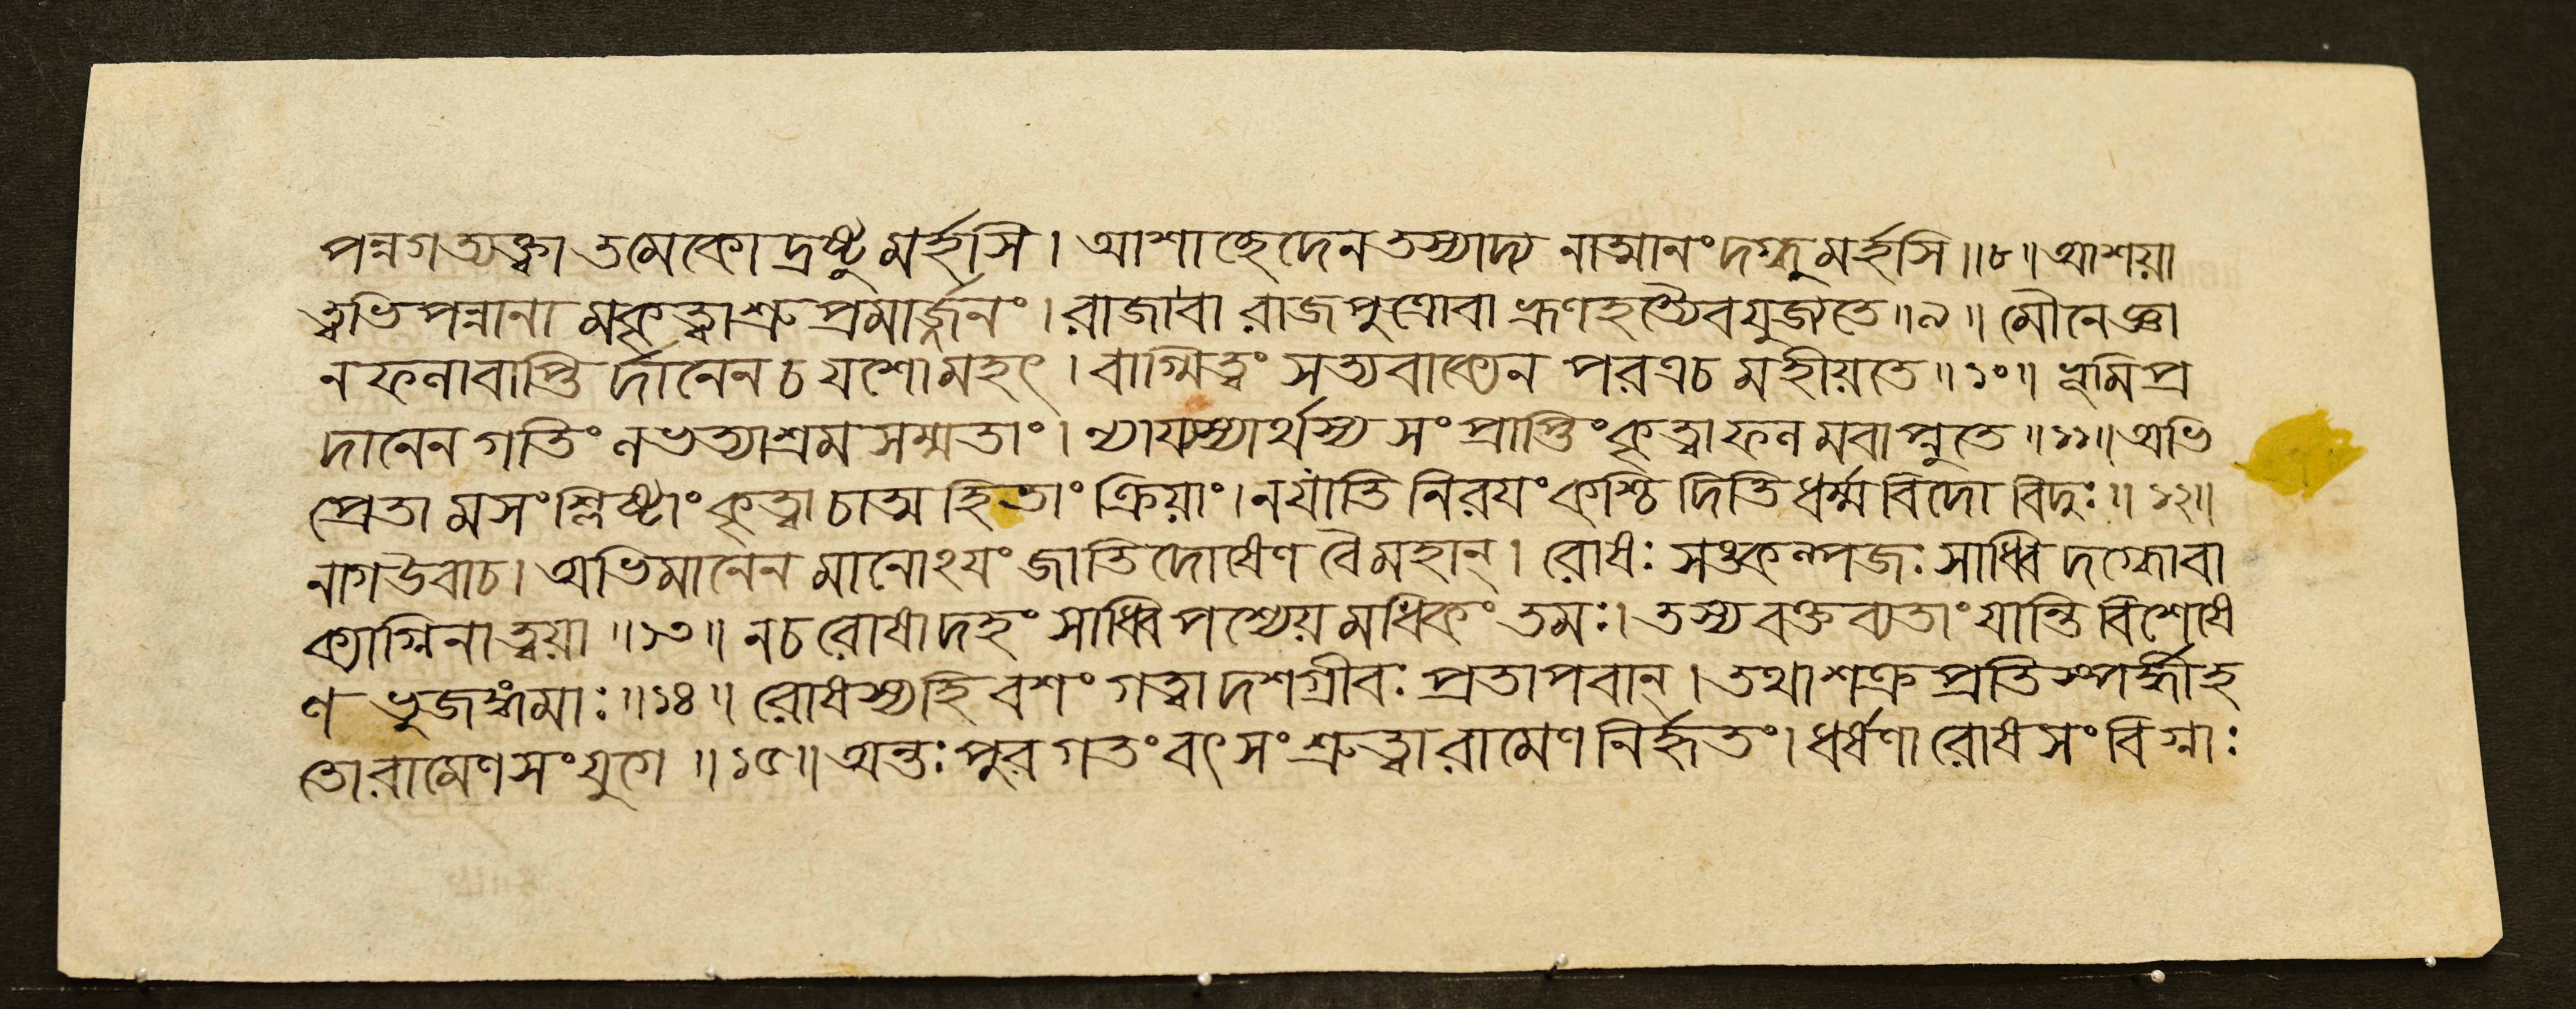 পন্নগত্যক্ত্বা তমেকো দ্রষ্টুমর্হসি । আশাচ্ছেদেন তস্যাদ্য নাত্মানং দগ্ধুমর্হসি ॥৮॥ আশয়া
ত্বভিপন্নানা মকৃত্বাশ্রুপ্রমার্জ্জনং । রাজাবা রাজপুত্রোবা ভ্রূণহত্যৈবযুজ্যতে ॥৯॥ মৌনেজ্ঞা
নফলাবাপ্তি র্দানেন চ যশোমহৎ । বাগ্মিত্বং সত্যবাক্যেন পরত্রচ মহীয়তে ॥১০॥ ভূমিপ্র
দানেন গতিং লভত্যাশ্রম সম্মতাং । ন্যায্যস্যার্থস্য সংপ্রাপ্তিং কৃত্বাফল মবাপ্নুতে ॥১১॥ অভি
প্রেতা মসংশ্লিষ্টাং কৃত্বা চাত্ম হিতাং ক্রিয়াং । নযাতি নিরযং কশ্চি দিতি ধর্ম্মবিদো বিদুঃ ॥১২॥
নাগউবাচ । অভিমানেন মানোঽযং জাতিদোষেণ বৈমহান্ । রোষঃ সঙ্কল্পজঃ সাধ্বি দগ্ধোবা
ক্যাগ্নিনাত্বয়া ॥১৩॥ নচ রোষাদহং সাধ্বি পশ্যেয় মধিকং তমঃ । তস্য বক্তব্যতাং যান্তি বিশেষে
ণ ভুজঙ্গমাঃ ॥১৪॥ রোষস্যহি বশং গত্বা দশগ্রীবঃ প্রতাপবান্ । তথাশক্র প্রতিস্পর্দ্ধীহ
তোরামেণ সংযুগে ॥১৫॥ অন্তঃপুর গতং বৎসং শ্রুত্বারামেণ নির্হৃতং । ধর্ষণা রোষসংবিগ্নাঃ